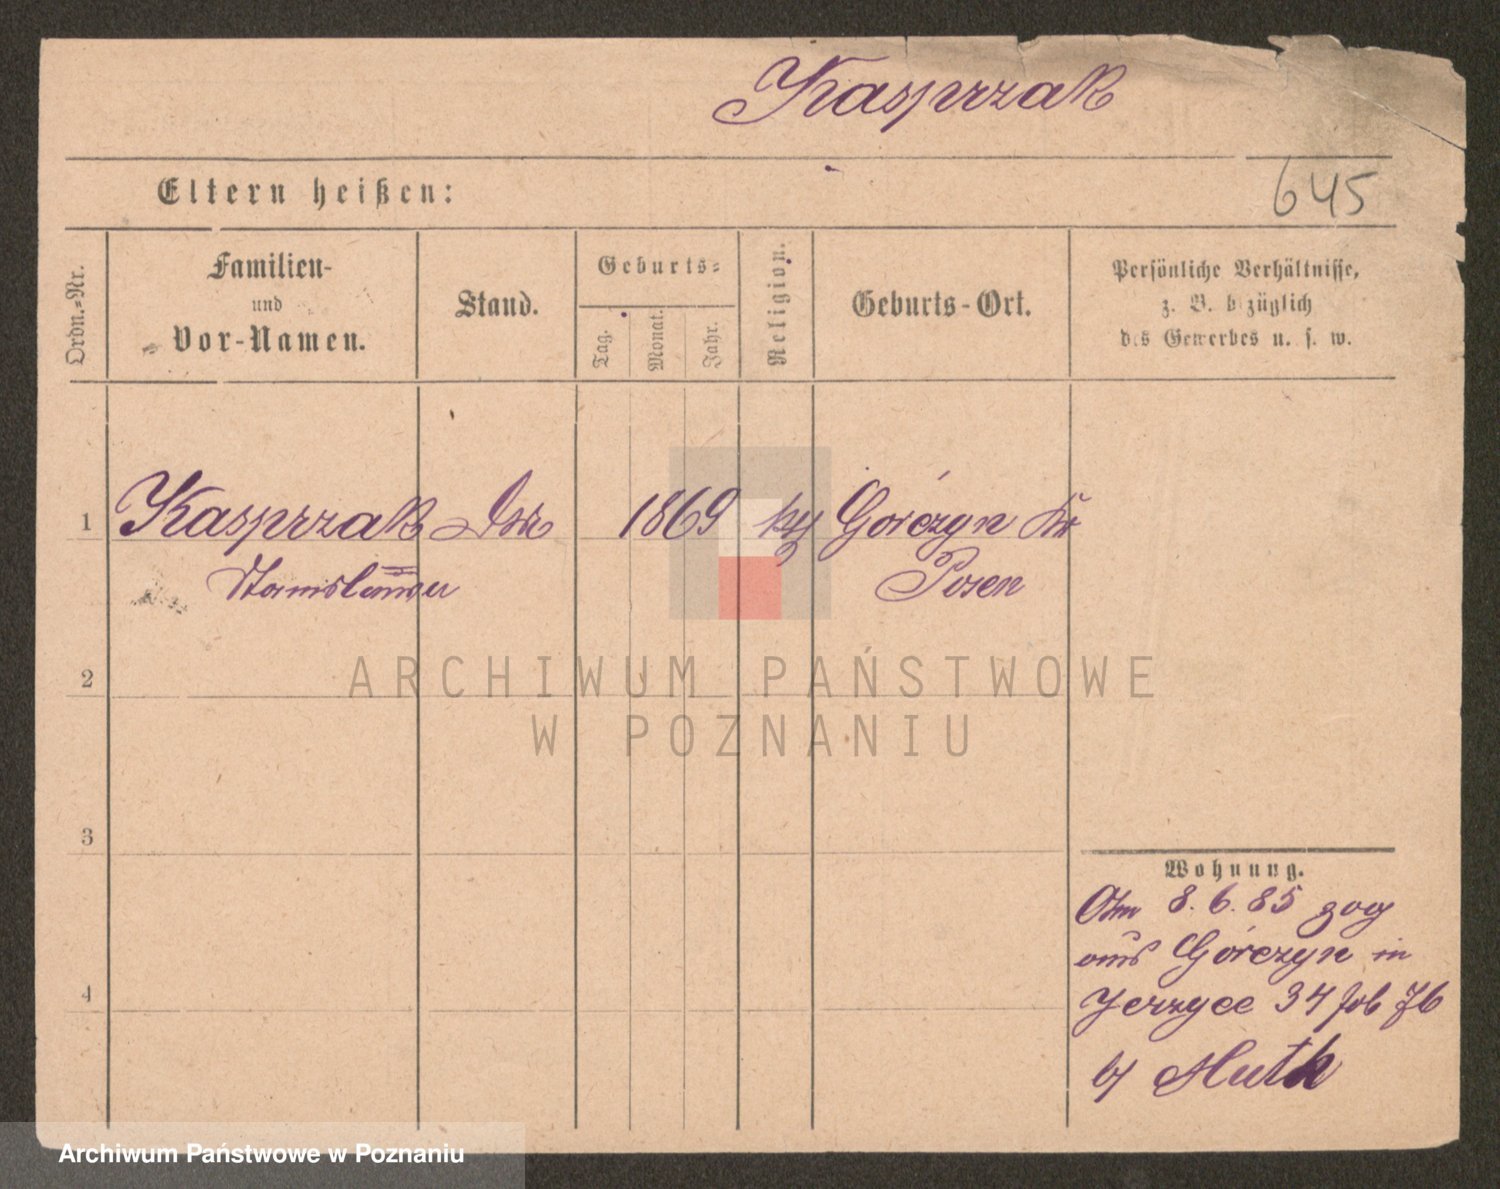 Kasprzak
Eltern heißen:
645
Ordn.-Nr.
Familien-
und
Vor-Namen.
Stand.
Geburts-
Tag.
Monat.
Jahr.
Religion.
Geburts-Ort.
Persönliche Verhältnisse,
z. B. bezüglich
des Gewerbes u. s. w.
1 Kasprzak 1869 Górczyn Kr
Posen
ARCHIWUM PAŃSTWOWE
2
W POZNANIU
3
Wohnung.
Am 8. 6. 85 zog
aus Górczyn in
4
Jerzyce 34
Huth
Archiwum Państwowe w Poznaniu